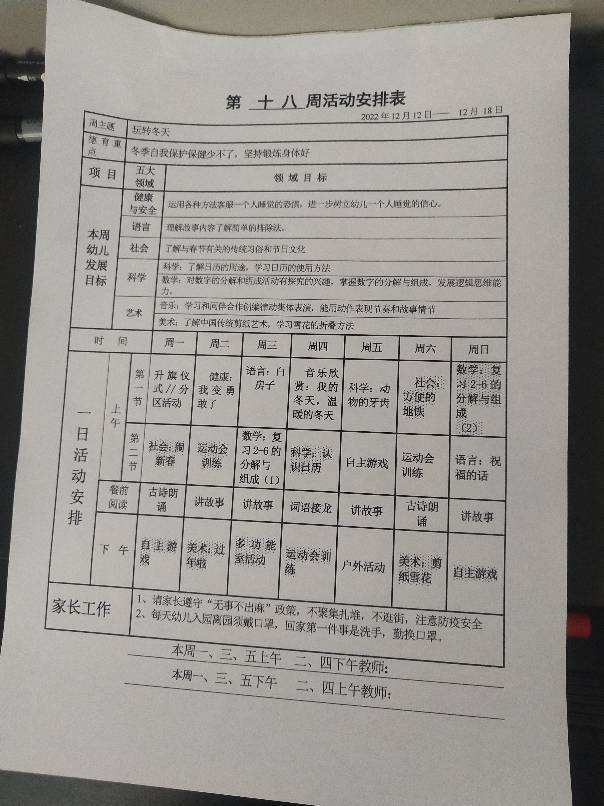 第 十 八 周活动安排表
2022年12月12日—— 12月18日
周主题 玩转冬天
德育重点 冬季自我保护保健少不了，坚持锻炼身体好
项 目 五大领域 领 域 目 标
本周幼儿发展目标
健康与安全 运用各种方法客服一个人睡觉的恐惧，进一步树立幼儿一个人睡觉的信心。
语言 理解故事内容了解简单的排除法。
社会 了解与春节有关的传统习俗和节日文化
科学 科学：了解日历的用途，学习日历的使用方法
数学：对数字的分解和组成活动有探究的兴趣，掌握数字的分解与组成，发展逻辑思维能力。
艺术 音乐：学习和同伴合作创编律动集体表演，能用动作表现节奏和故事情节
美术：了解中国传统剪纸艺术，学习雪花的折叠方法
时 间 周一 周二 周三 周四 周五 周六 周日
一日活动安排
上午 第一节 升旗仪式//分区活动 健康：我变勇敢了 语言：白房子 音乐欣赏：我的冬天，温暖的冬天 科学：动物的牙齿 社会：方便的地铁 数学：复习2-6的分解与组成（2）
第二节 社会：闹新春 运动会训练 数学：复习2-6的分解与组成（1） 科学：认识日历 自主游戏 运动会训练 语言：祝福的话
餐前阅读 古诗朗诵 讲故事 讲故事 词语接龙 讲故事 古诗朗诵 讲故事
下 午 自主游戏 美术：过年啦 多功能室活动 运动会训练 户外活动 美术：剪纸雪花 自主游戏
家长工作 1、请家长遵守“无事不出麻”政策，不聚集扎堆，不逛街，注意防疫安全
2、每天幼儿入园离园须戴口罩，回家第一件事是洗手，勤换口罩。
本周一、三、五上午 二、四下午教师：
本周一、三、五下午 二、四上午教师：